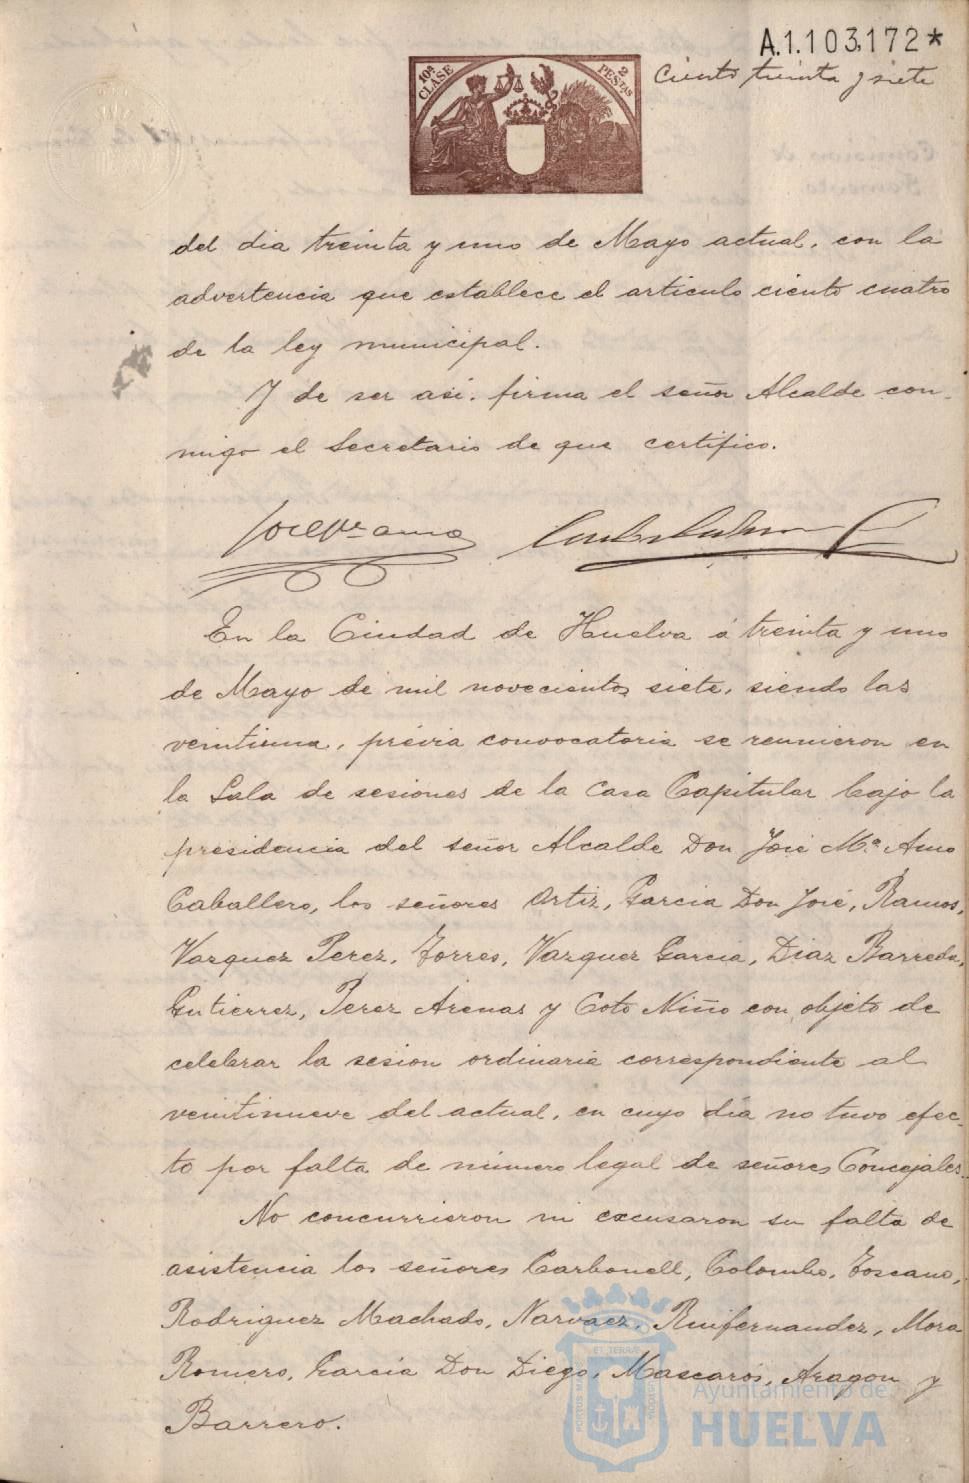 A.1.103,172*
Ciento treinta y siete
10ª CLASE
2 PESTAS
del dia treinta y uno de Mayo actual, con la
advertencia que establece el articulo ciento cuatro
de la ley municipal.
Y de ser asi. firma el señor Alcalde con-
migo el Secretario de que certifico.
En la Ciudad de Huelva á treinta y uno
de Mayo de mil novecientos siete, siendo las
veintiuna, prévia convocatoria se reunieron en
la Sala de sesiones de la Casa Capitular bajo la
presidencia del señor Alcalde Don José Mª Amo
Caballero, los señores Ortiz, Garcia Don José, Ramos,
Vazquez Perez, Torres, Vazquez Garcia, Diaz Barreda,
Gutierrez, Perez Arenas y Coto Niño con objeto de
celebrar la sesion ordinaria correspondiente al
veintinueve del actual, en cuyo dia no tuvo efec-
to por falta de número legal de señores Concejales.
No concurrieron ni excusaron su falta de
asistencia los señores Carbonell, Colombo, Toscano,
Rodriguez Machado, Narvaez, Ruifernandez, Mora
Romero, Garcia Don Diego, Mascarós, Aragon y
Barrero.
Ayuntamiento de
HUELVA